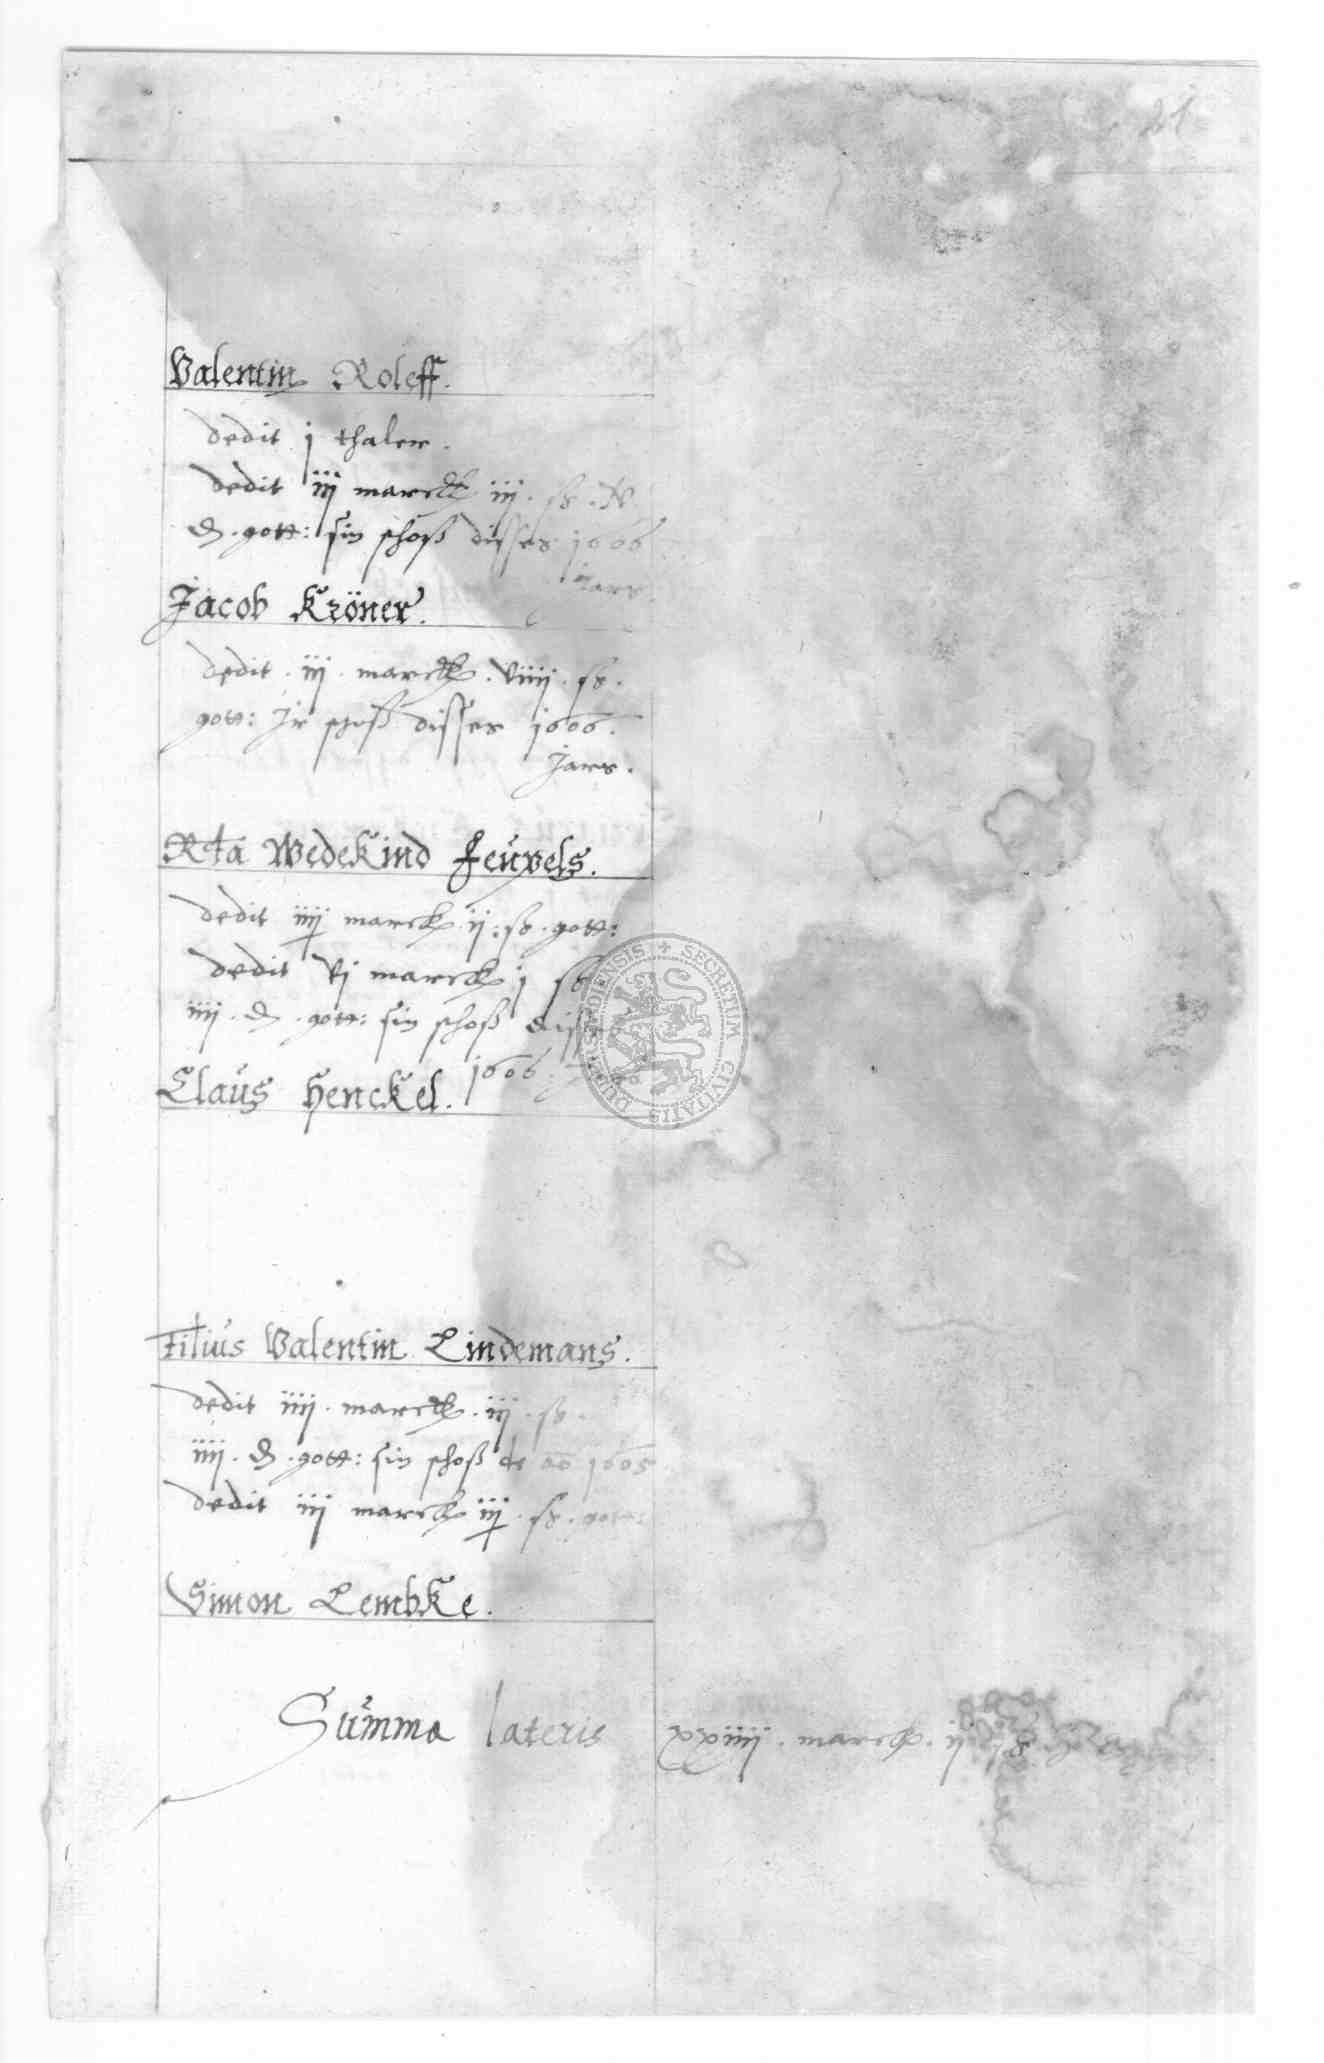 21
Valentin Roleff.
dedit j thaler.
dedit iij marck iij. sz.
d. gott: sin schoß disses 1606
Jars.
Jacob Kröner.
dedit. iij. marck. viiij. sz.
gott: Jr schoß disses 1606.
Jars.
Rta Wedekind Feuvels.
dedit iiij marck ij: sz. gott:
dedit vj marck j sz
iiij. d. gott: sin schoß disses
1606.
Claus Henckel.
Filius Valentin Lindemans.
dedit iiij. marck. iij. sz.
iiij. d. gott: sin schoß de ao 1605
dedit iij marck iij. sz. gott:
Simon Lembke.
Summa lateris xxiiij. marck. ij sz
SECRETUM CIVITATIS DUDERSTADIENSIS